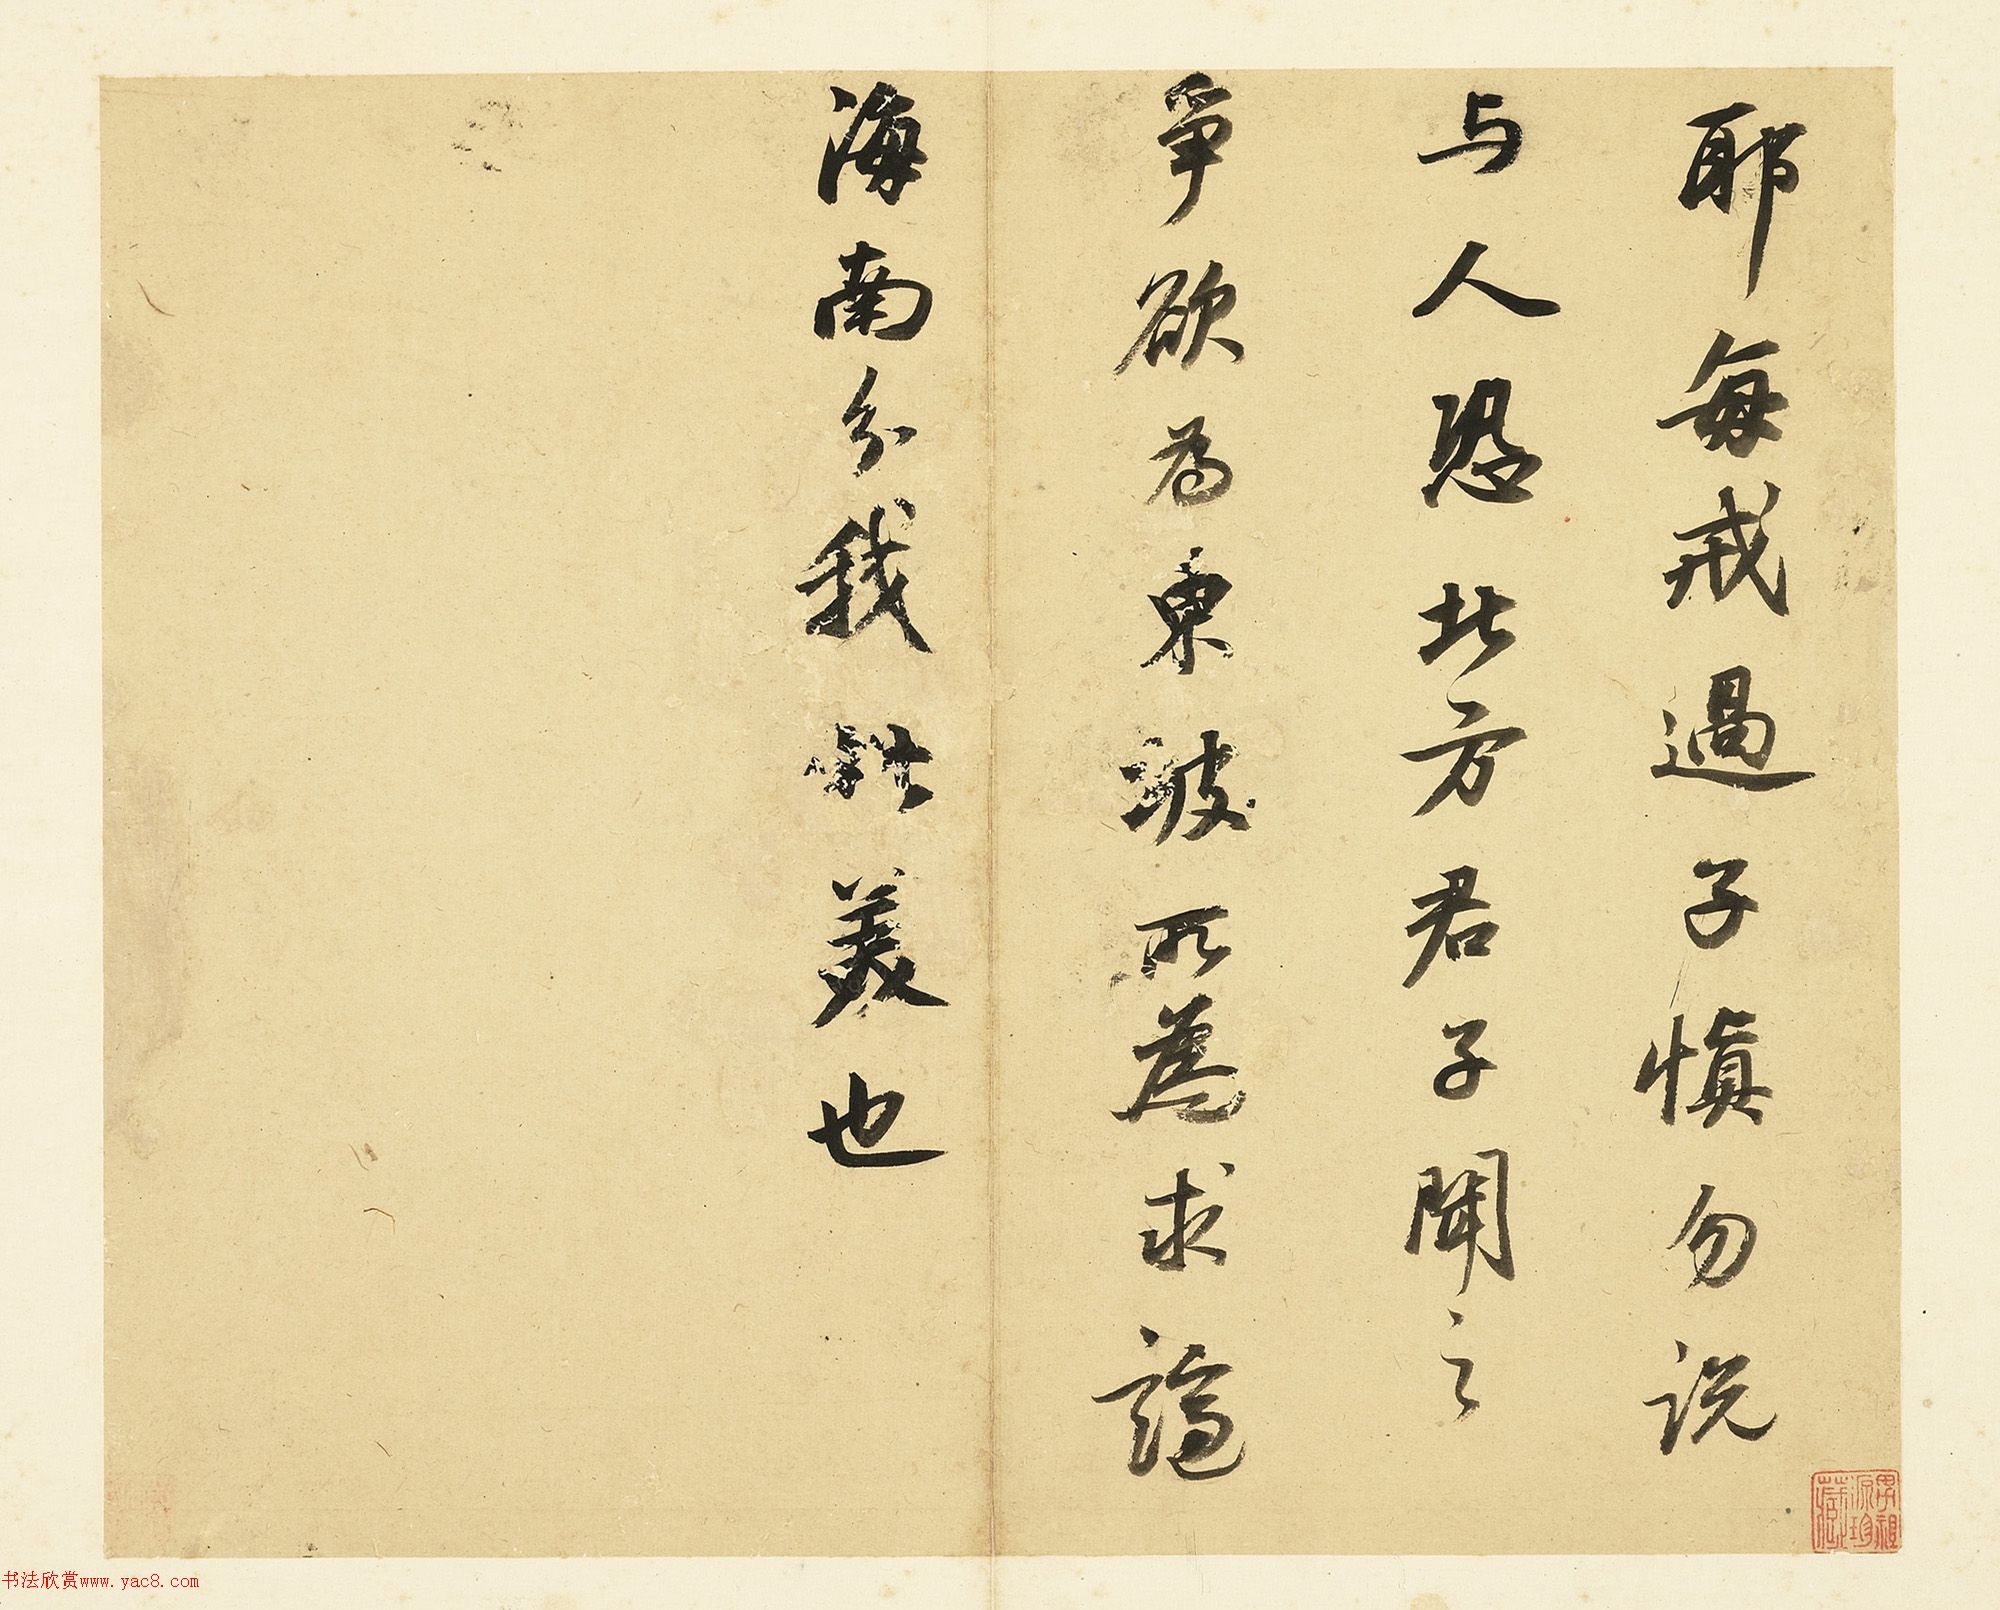 耶每戒過子慎勿説
与人恐北方君子聞之
爭欲為東坡所為求謫
海南分我此美也
书法欣赏www.yac8.com